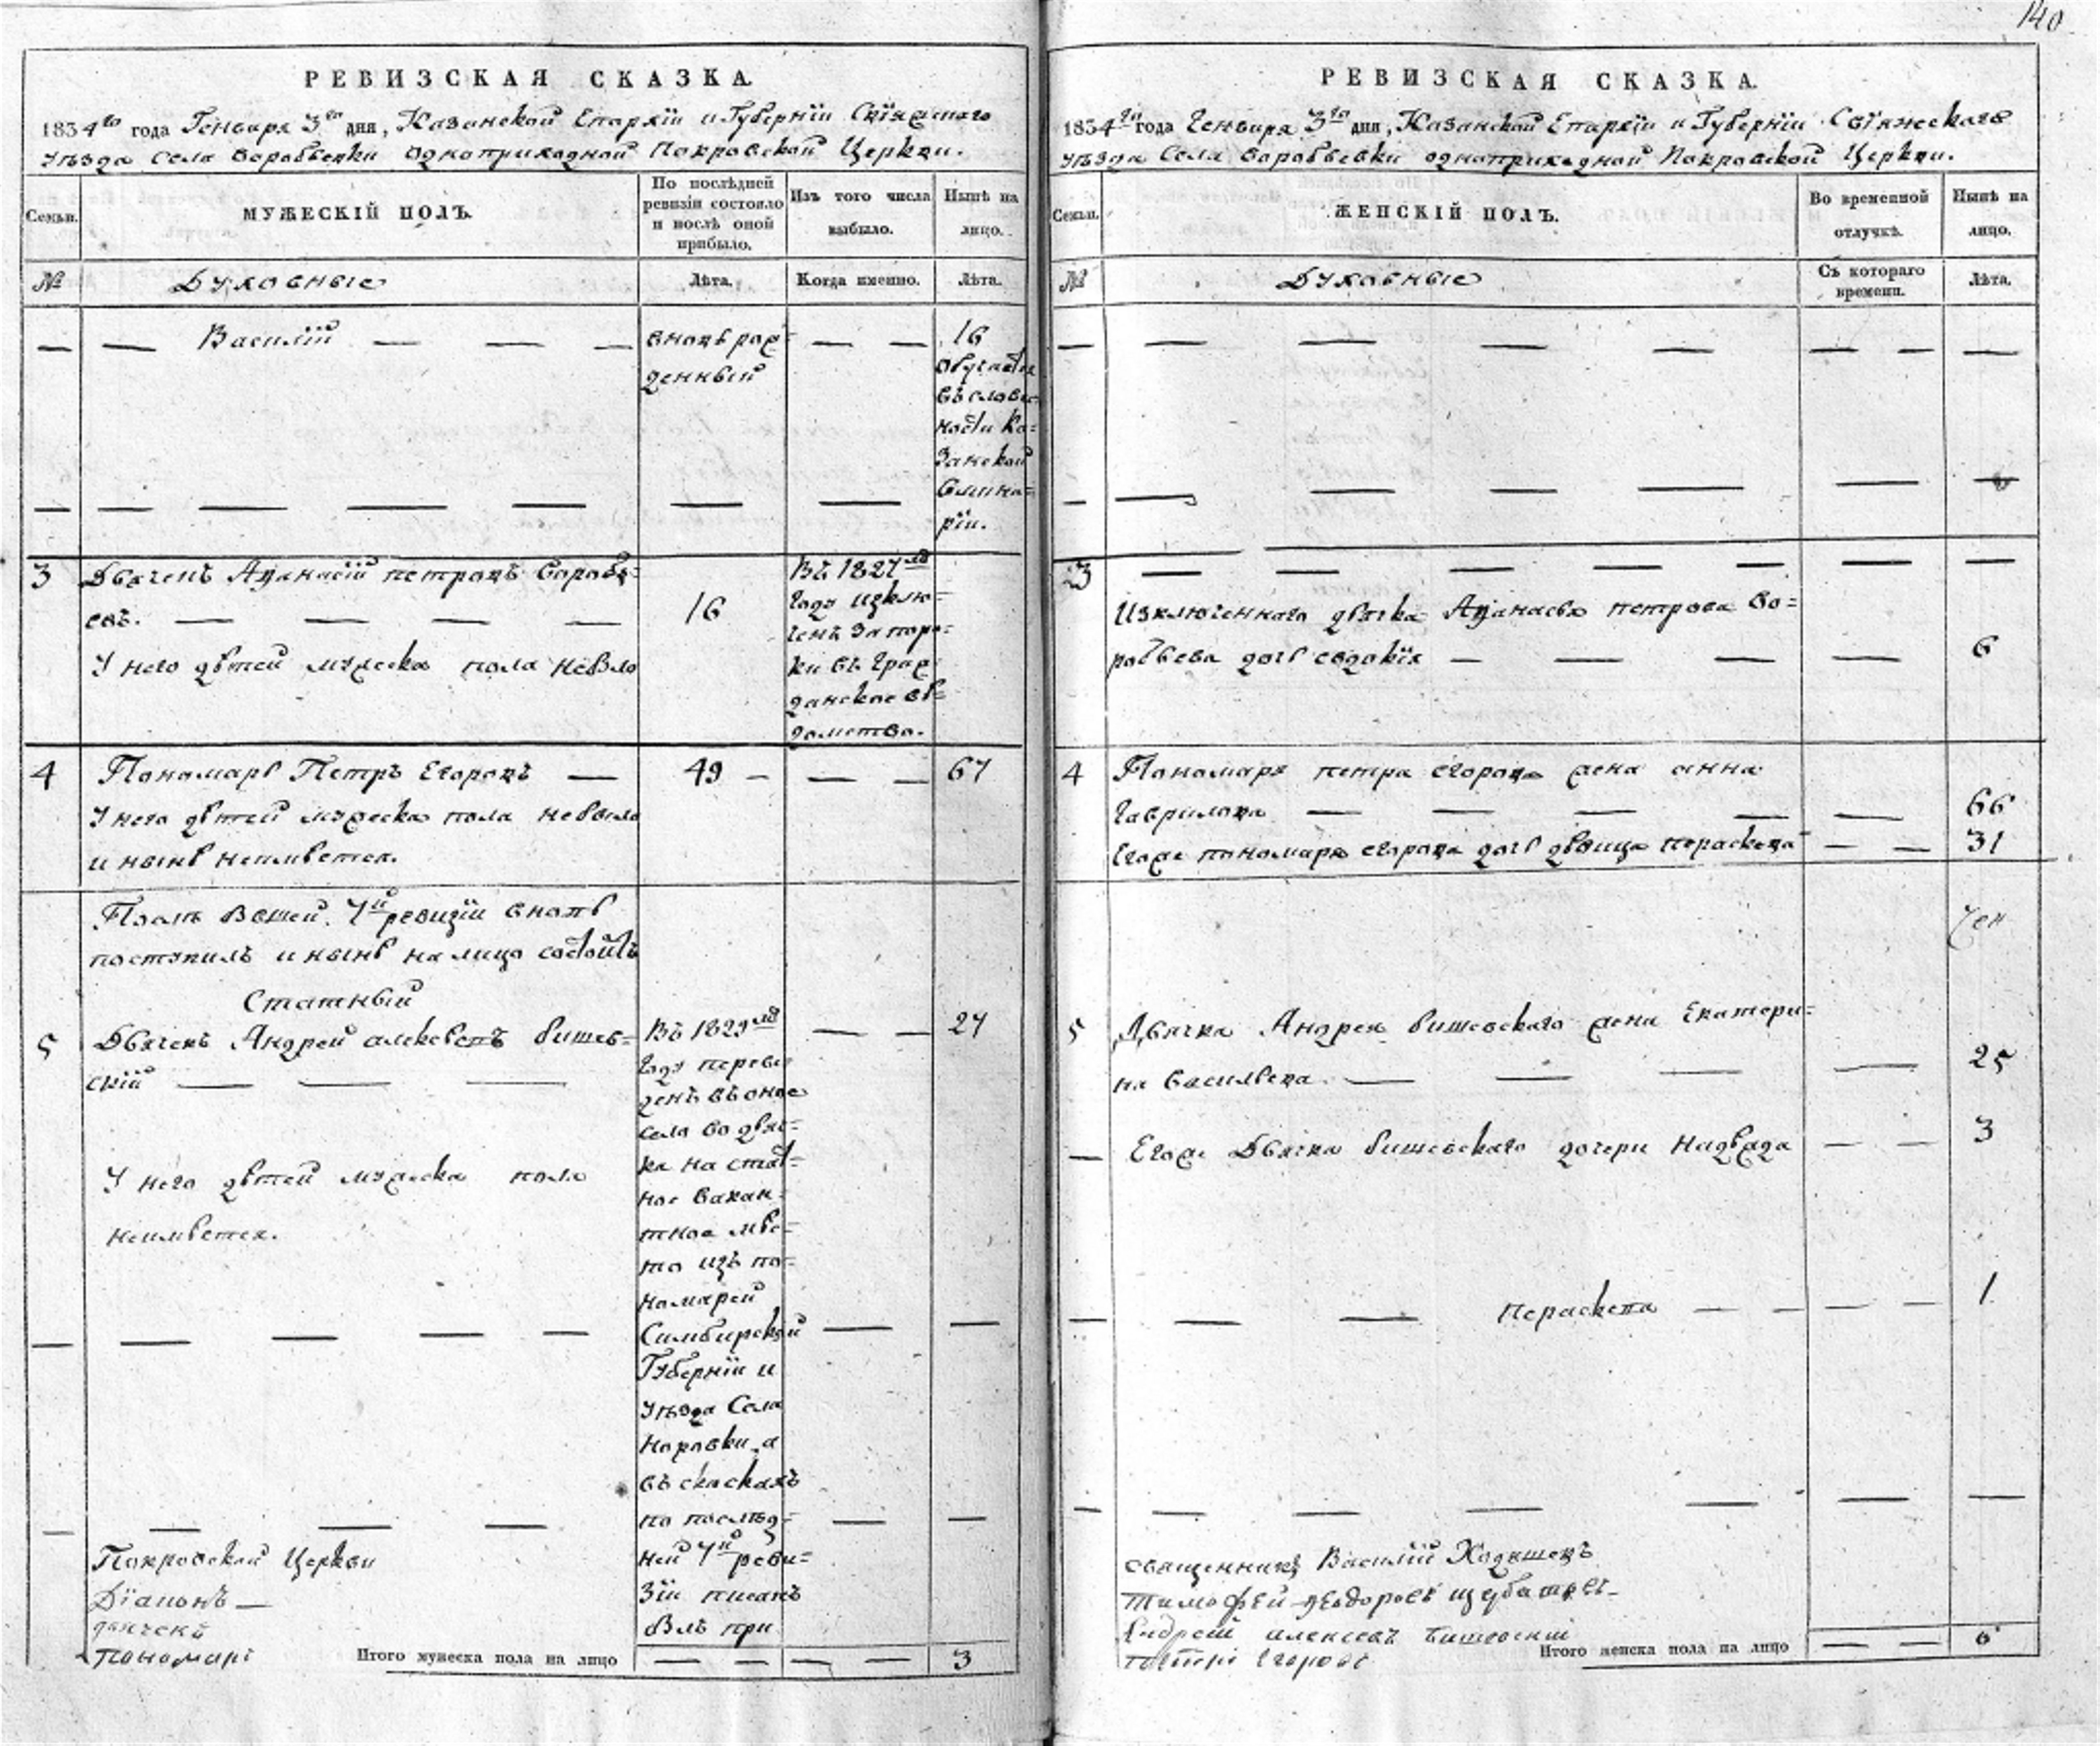 140
РЕВИЗСКАЯ СКАЗКА.
1834го года Генваря 3го дня, Казанской Епархіи и Губерніи Свіяжскаго
уѣзда Села Воробьевки одноприходной Покровской Церкви.
Семьи.
МУЖЕСКІЙ ПОЛЪ.
По послѣдней ревизіи состояло и послѣ оной прибыло.
Изъ того числа выбыло.
Нынѣ на лицо.
№
Духовные
Лѣта.
Когда именно.
Лѣта.
Василій
вновь рож-
денный
16
обучается
въ словес-
ности Ка-
занской
Семина-
ріи.
3
Дьячекъ Афанасій петровъ Воробь-
евъ.
16
У него дѣтей мужеска пола небыло
Въ 1827мъ
году исклю-
ченъ за поро-
ки въ граж-
данское вѣ-
домство.
4
Пономарь Петръ Егоровъ
49
67
У него дѣтей мужеска пола небыло
и нынѣ неимѣется.
Послѣ вышей. 7й ревизіи вновь
поступилъ и нынѣ на лицо состоитъ
Статный
5
Дьячекъ Андрей алексѣевъ бишев-
скій
27
У него дѣтей мужеска пола
неимѣется.
Въ 1829мъ
году переве
денъ въ оное
село во дьяч-
ка на стат-
ное вакан-
тное мѣс-
то изъ по-
номарей
Симбирской
Губерніи и
уѣзда Села
Норовки, а
въ скаскахъ
по послѣд-
ней 7й реви-
зіи писанъ
былъ при
Покровской Церкви
Діаконъ
дьячекъ
пономарь
Итого мужеска пола на лицо
3
РЕВИЗСКАЯ СКАЗКА.
1834го года Генваря 3го дня, Казанской Епархіи и Губерніи Свіяжскаго
уѣзда Села Воробьевки одноприходной Покровской Церкви.
Семьи.
ЖЕНСКІЙ ПОЛЪ.
Во временной отлучкѣ.
Нынѣ на лицо.
№
Духовные
Съ котораго времени.
Лѣта.
3
Изключеннаго дьячка Афанасья петрова Во-
робьева дочь евдокія
6
4
Пономаря петра егорова жена анна
гаврилова
66
Егоже пономаря егорова дочь дѣвица параскева
31
5
Дьячка Андрея бишевскаго жена Екатери-
на васильева
25
Егоже Дьячка бишевскаго дочери Надѣжда
3
Параскева
1
священникъ Василій Ходяшевъ
тимофей феодоровъ
Андрей алексеевъ бишевскій
петръ Егоровъ
Итого женска пола на лицо
6